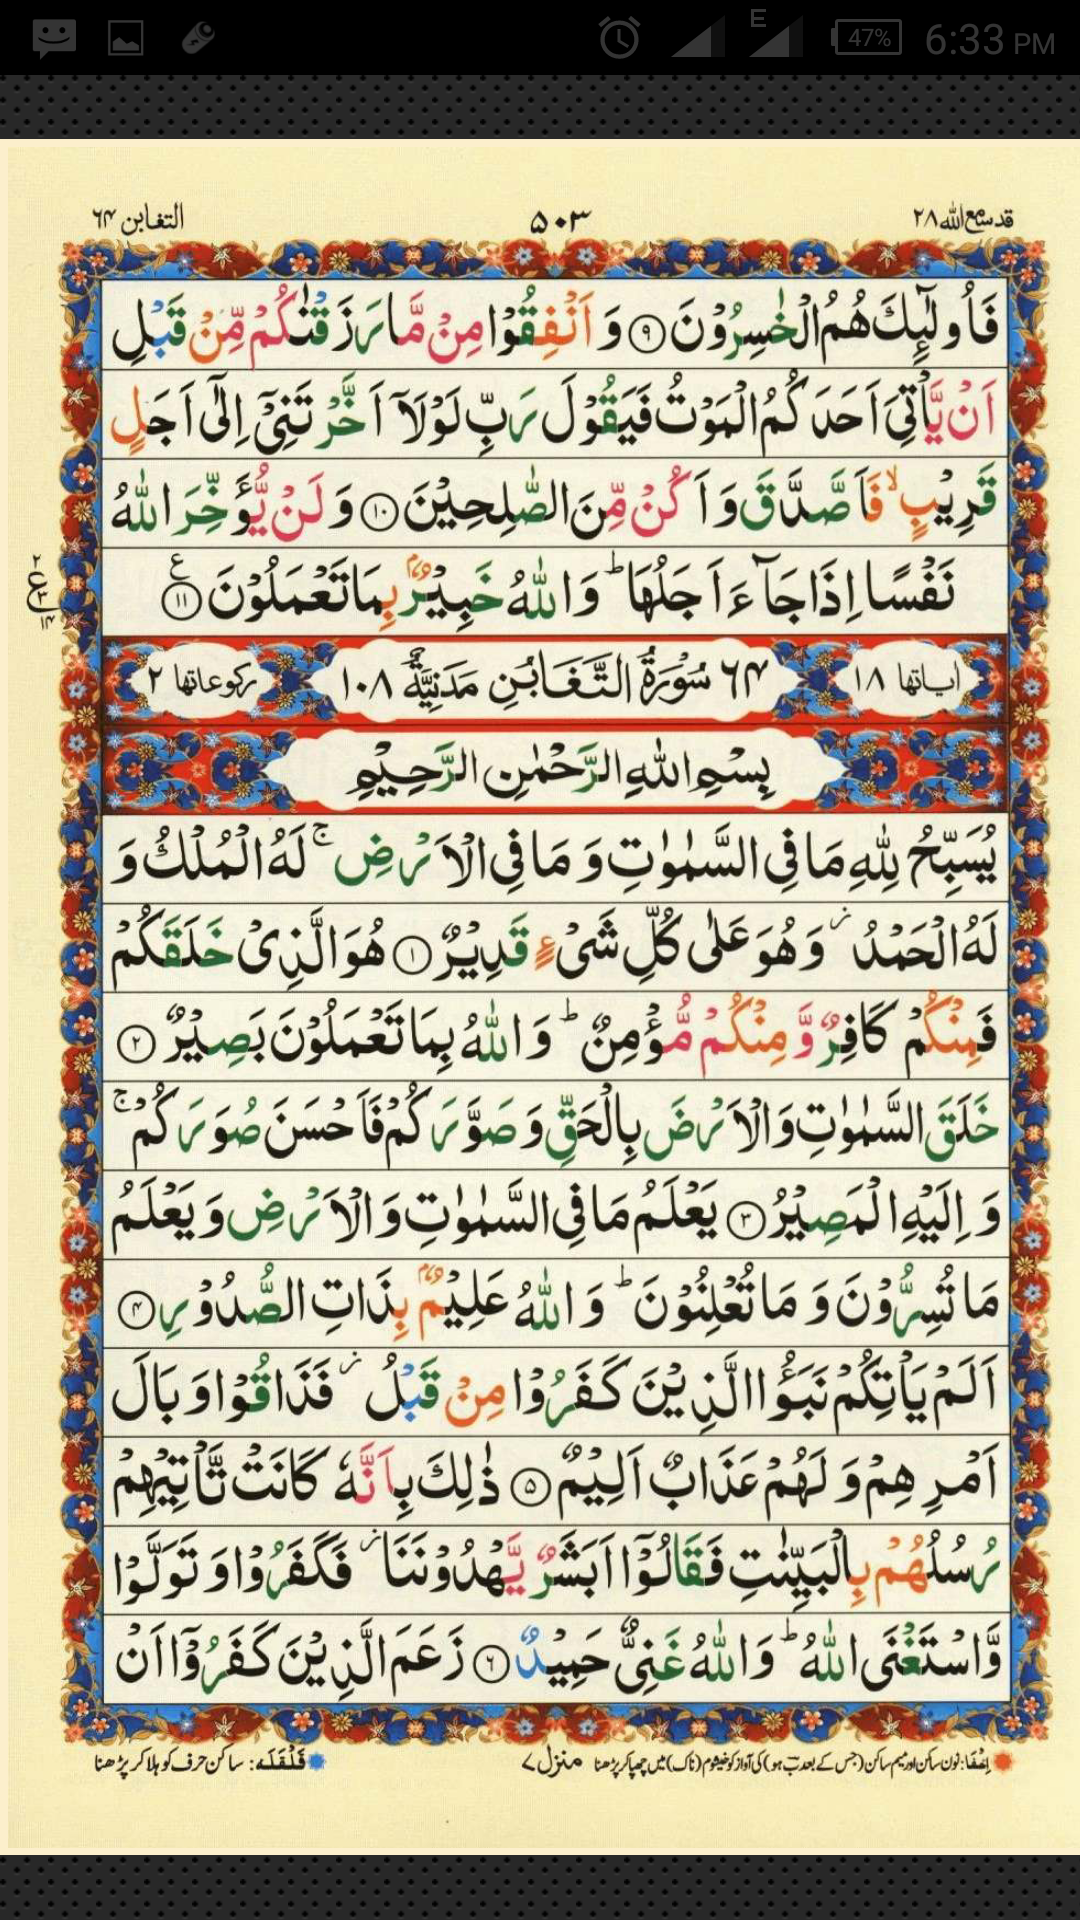 47% 6:33 PM
E
قد سمع الله ۲۸ ۵۰۳ التغابن ۶۴
فَاُولٰٓئِكَ هُمُ الْخٰسِرُوْنَ ۹ وَ اَنْفِقُوْا مِنْ مَّا رَزَقْنٰكُمْ مِّنْ قَبْلِ
اَنْ يَّاْتِىَ اَحَدَكُمُ الْمَوْتُ فَيَقُوْلَ رَبِّ لَوْلَاۤ اَخَّرْتَنِىْۤ اِلٰٓى اَجَلٍ
قَرِيْبٍۙ فَاَصَّدَّقَ وَ اَكُنْ مِّنَ الصّٰلِحِيْنَ ۱۰ وَ لَنْ يُّؤَخِّرَ اللّٰهُ
نَفْسًا اِذَا جَآءَ اَجَلُهَا ؕ وَ اللّٰهُ خَبِيْرٌۢ بِمَا تَعْمَلُوْنَ ۱۱ ع
۲ ع ۳ ۱۴
اٰیاتها ۱۸ ۶۴ سُوْرَةُ التَّغَابُنِ مَدَنِيَّةٌ ۱۰۸ رکوعاتها ۲
بِسْمِ اللّٰهِ الرَّحْمٰنِ الرَّحِيْمِ
يُسَبِّحُ لِلّٰهِ مَا فِى السَّمٰوٰتِ وَ مَا فِى الْاَرْضِ ۚ لَهُ الْمُلْكُ وَ
لَهُ الْحَمْدُ ز وَ هُوَ عَلٰى كُلِّ شَىْءٍ قَدِيْرٌ ۱ هُوَ الَّذِىْ خَلَقَكُمْ
فَمِنْكُمْ كَافِرٌ وَّ مِنْكُمْ مُّؤْمِنٌ ؕ وَ اللّٰهُ بِمَا تَعْمَلُوْنَ بَصِيْرٌ ۲
خَلَقَ السَّمٰوٰتِ وَ الْاَرْضَ بِالْحَقِّ وَ صَوَّرَكُمْ فَاَحْسَنَ صُوَرَكُمْ ۚ
وَ اِلَيْهِ الْمَصِيْرُ ۳ يَعْلَمُ مَا فِى السَّمٰوٰتِ وَ الْاَرْضِ وَ يَعْلَمُ
مَا تُسِرُّوْنَ وَ مَا تُعْلِنُوْنَ ؕ وَ اللّٰهُ عَلِيْمٌۢ بِذَاتِ الصُّدُوْرِ ۴
اَلَمْ يَاْتِكُمْ نَبَؤُا الَّذِيْنَ كَفَرُوْا مِنْ قَبْلُ ز فَذَاقُوْا وَبَالَ
اَمْرِهِمْ وَ لَهُمْ عَذَابٌ اَلِيْمٌ ۵ ذٰلِكَ بِاَنَّهٗ كَانَتْ تَّاْتِيْهِمْ
رُسُلُهُمْ بِالْبَيِّنٰتِ فَقَالُوْۤا اَبَشَرٌ يَّهْدُوْنَنَا ز فَكَفَرُوْا وَ تَوَلَّوْا
وَّ اسْتَغْنَى اللّٰهُ ؕ وَ اللّٰهُ غَنِىٌّ حَمِيْدٌ ۶ زَعَمَ الَّذِيْنَ كَفَرُوْۤا اَنْ
اِخْفَا: نون ساکن اور میم ساکن (جس کے بعد ب ہو) کی آواز کو خیشوم (ناک) میں چھپا کر پڑھنا منزل ۷ قَلْقَلَه: ساکن حرف کو ہلا کر پڑھنا